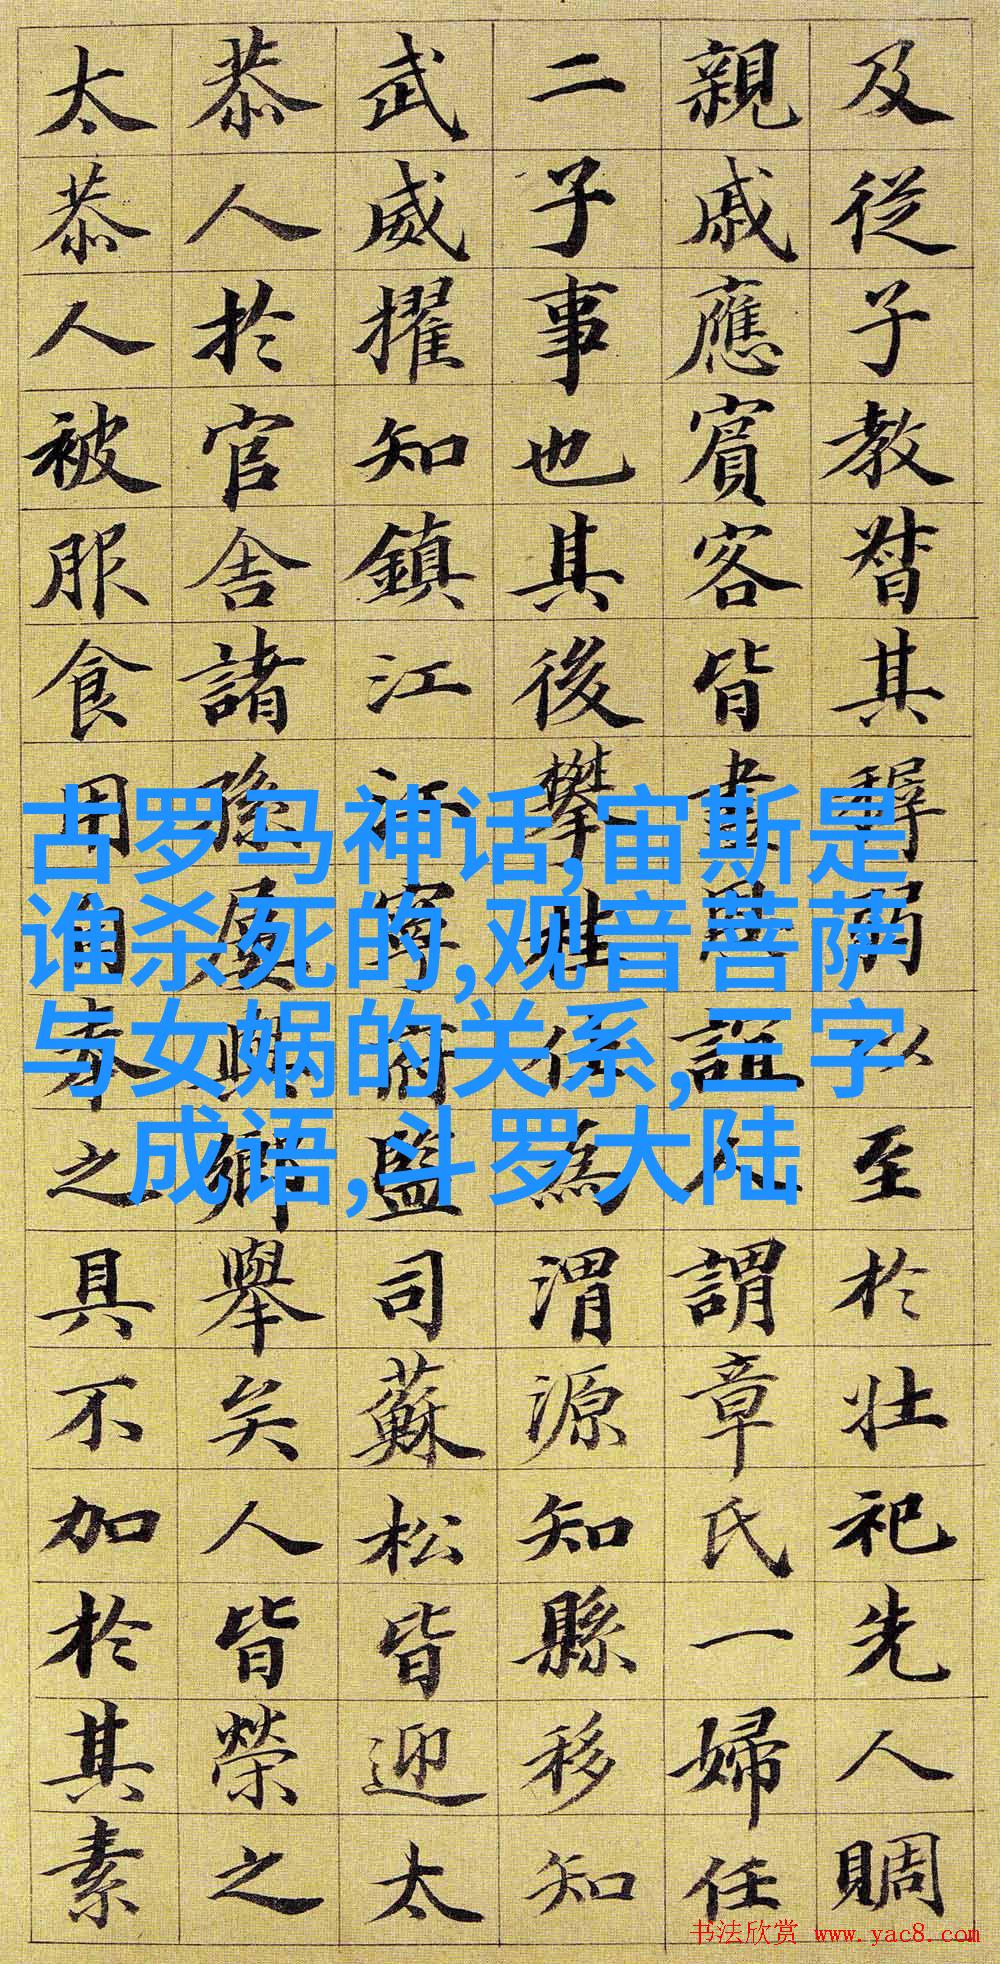 及從子教督其稺弱以至於壯祀先人賙
親戚應賓客皆恩誼人謂章氏一婦任
二子事也其後攀為渭源知縣移知
武威擢知鎮江江寧府監司蘇松皆迎太
恭人於官舍諸孫與鄉舉矣人皆榮之
太恭人被服食用自奉之具不加於其素
古罗马神话,宙斯是
谁杀死的,观音菩萨
与女娲的关系,三字
成语,斗罗大陆
书法欣赏 www.yac8.com